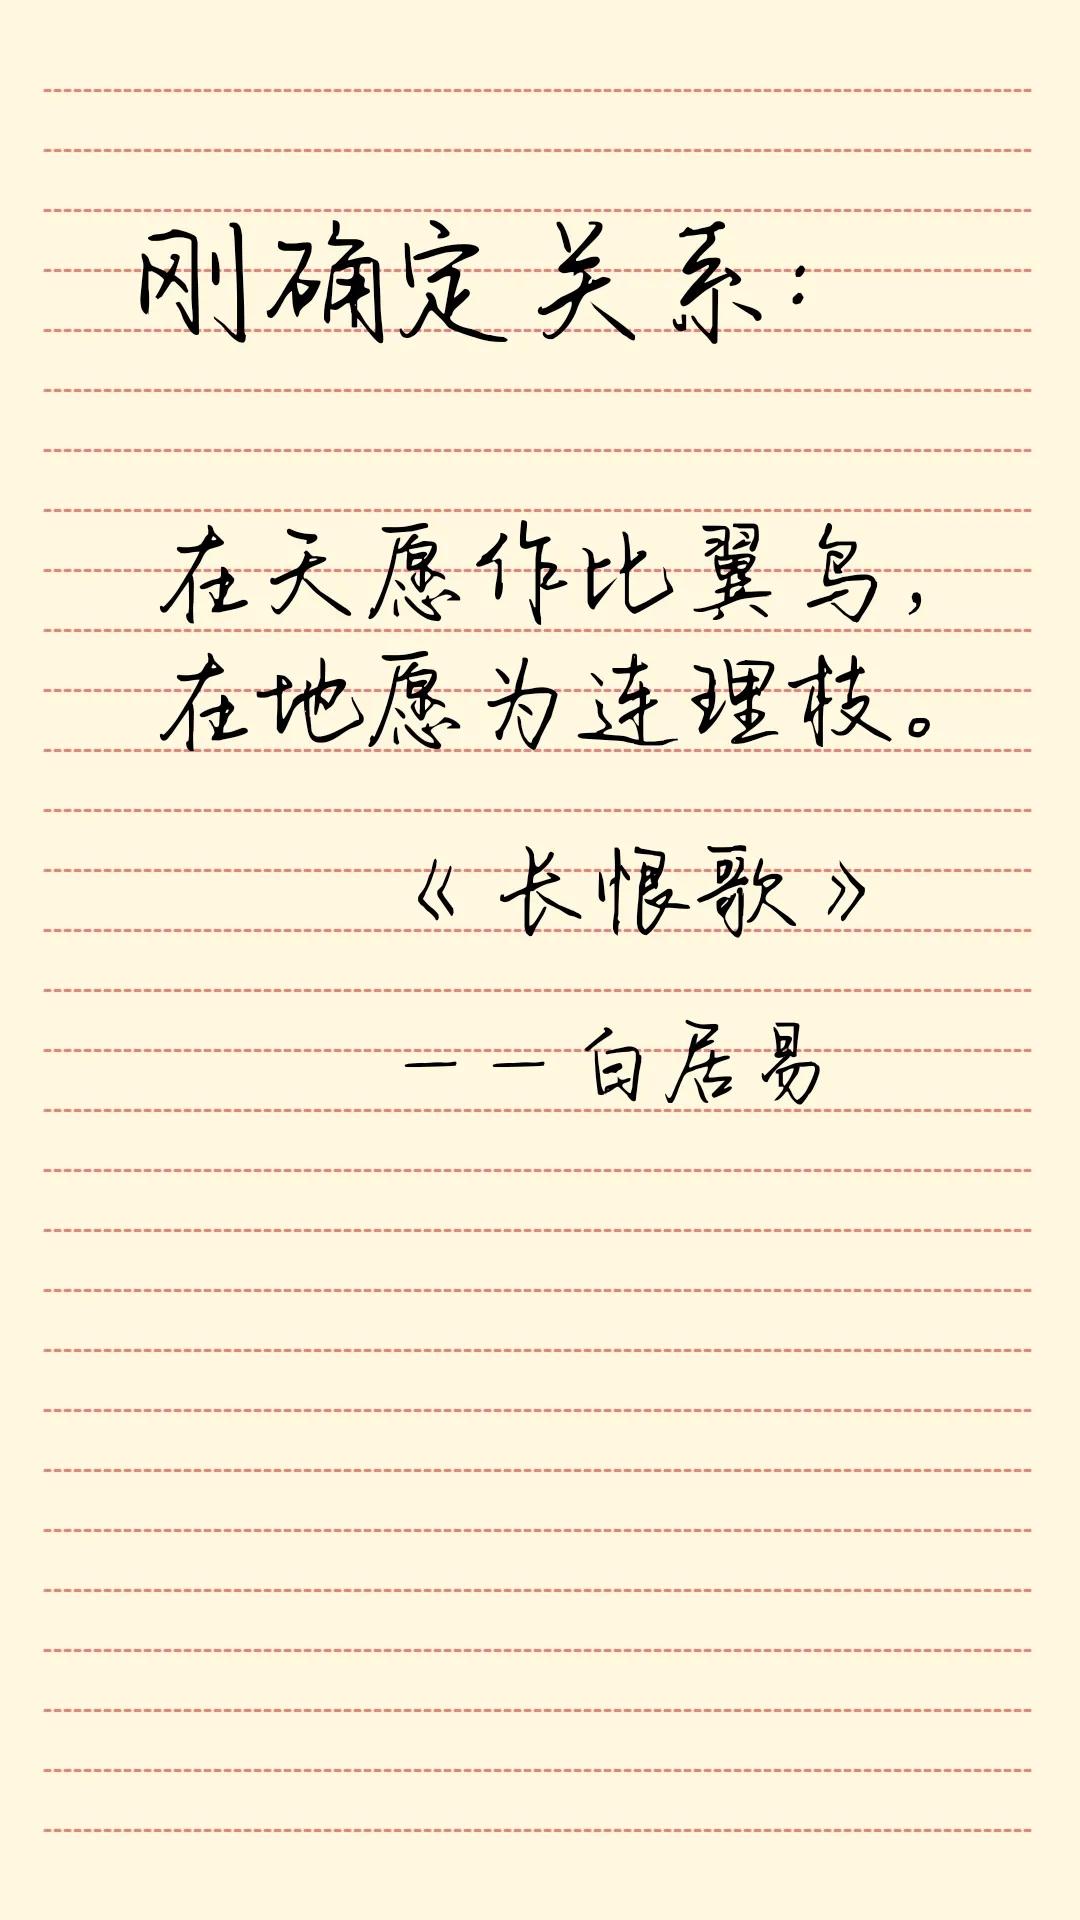 刚确定关系:
在天愿作比翼鸟,
在地愿为连理枝。
《长恨歌》
——白居易